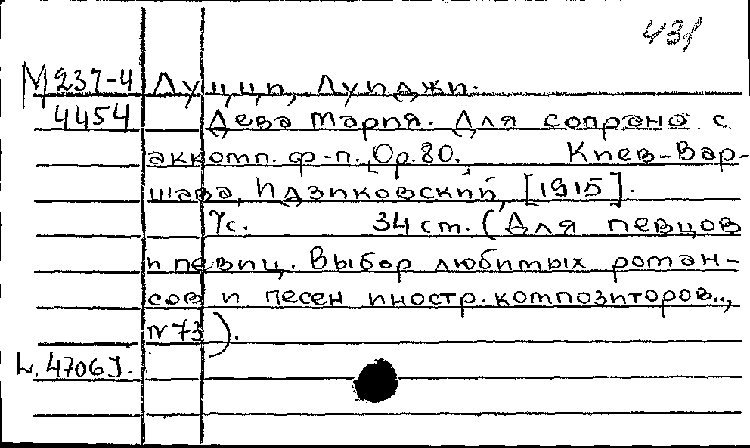 431
М 237-4 Луцци, Луиджи.
4454 Дева Мария. Для сопрано с
аккомп. ф-п. Op.80. Киев-Вар-
шава, Идзиковский, [1915].
7с. 34 ст. (Для певцов
и певиц. Выбор любимых роман-
сов и песен иностр. композиторов..,
N 73).
L. 4706 J.